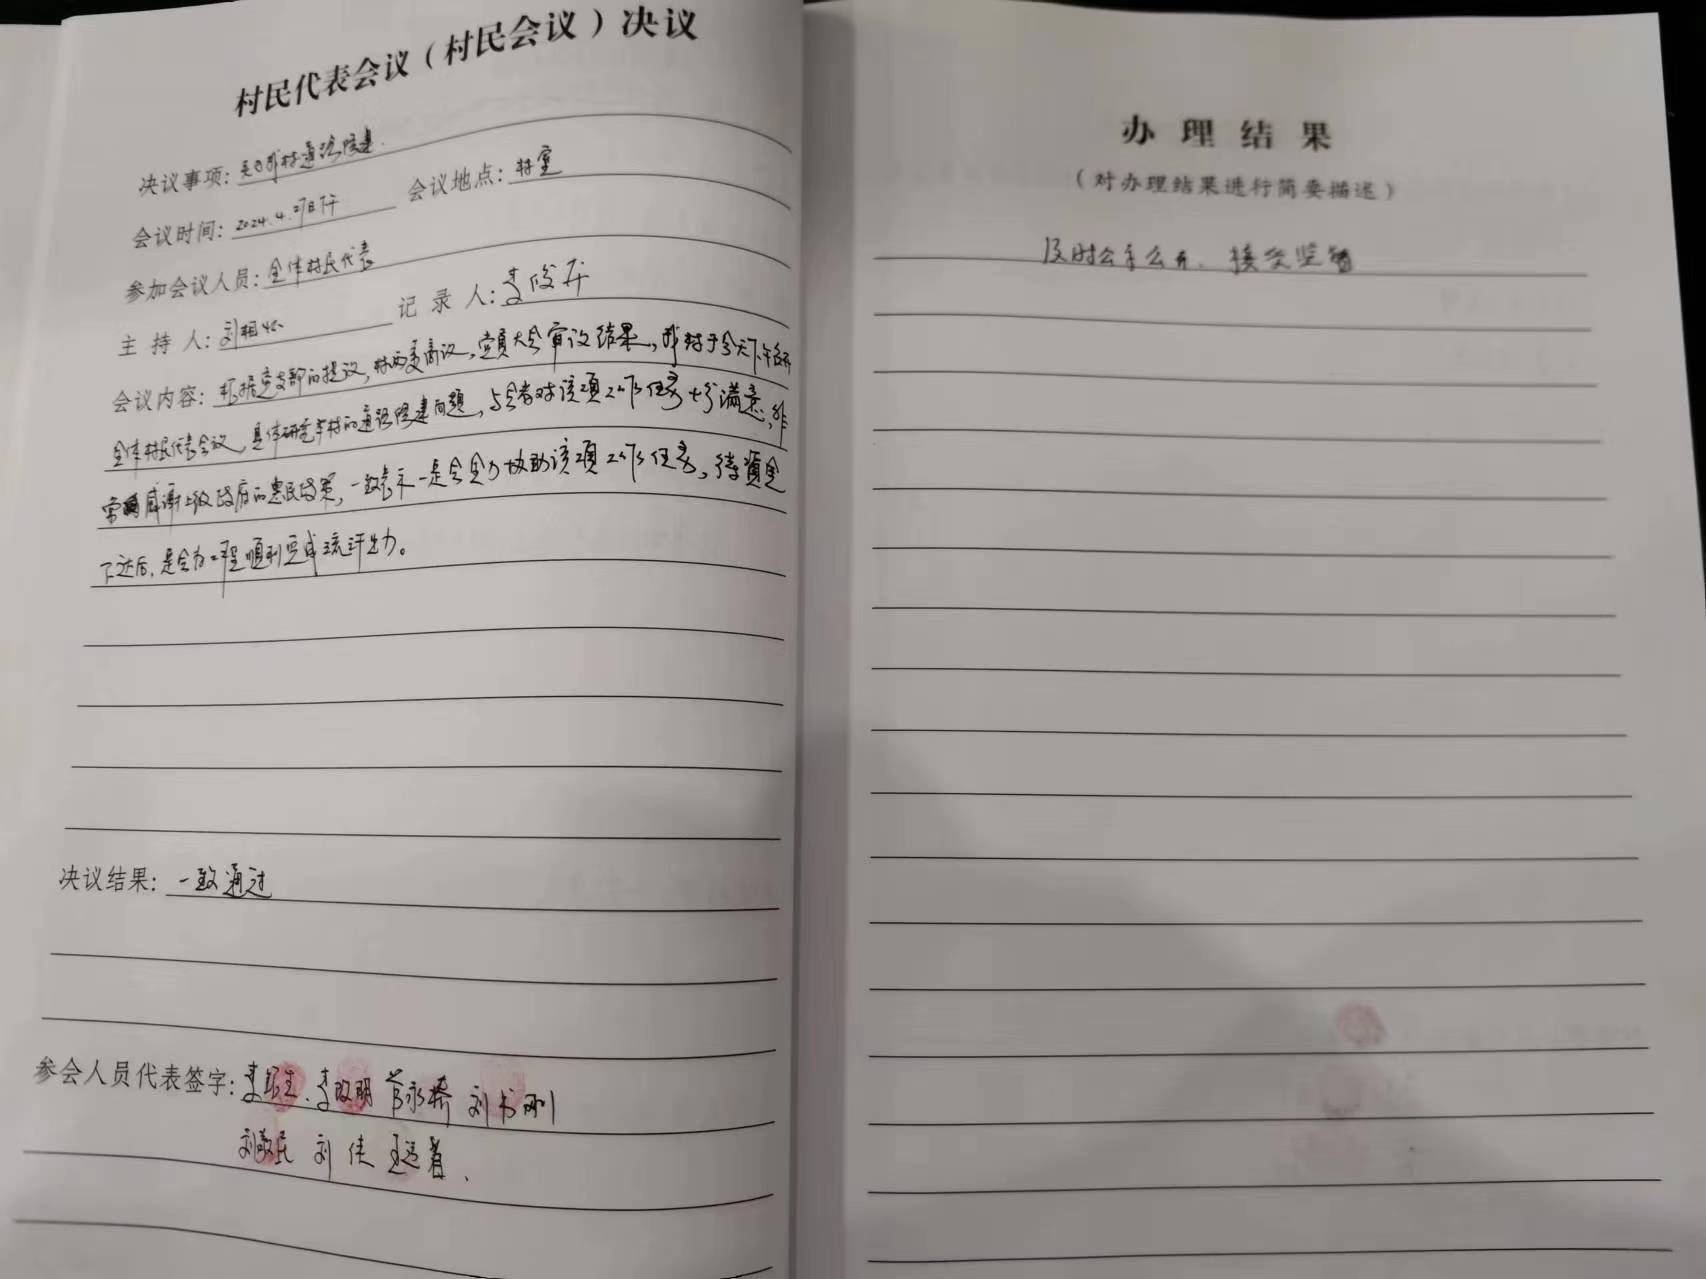 村民代表会议（村民会议）决议
决议事项：关于我村道路修建
会议时间：2024.4.27日下午 会议地点：村室
参加会议人员：全体村民代表
主持人：刘相 记录人：李俊
会议内容：根据党支部的提议，村两委商议，党员大会审议结果，我村于今天下午召开
全体村民代表会议，具体研究本村的道路修建问题，与会者对该项工作任务十分满意，非
常感谢上级政府的惠民政策，一致表示一定会全力协助该项工作任务，待资金
下达后，定会为工程顺利完成流汗出力。
决议结果：一致通过
参会人员代表签字：李 李改明 永 刘书
刘敬民 刘佳 王
办理结果
（对办理结果进行简要描述）
及时公示公开、接受监督